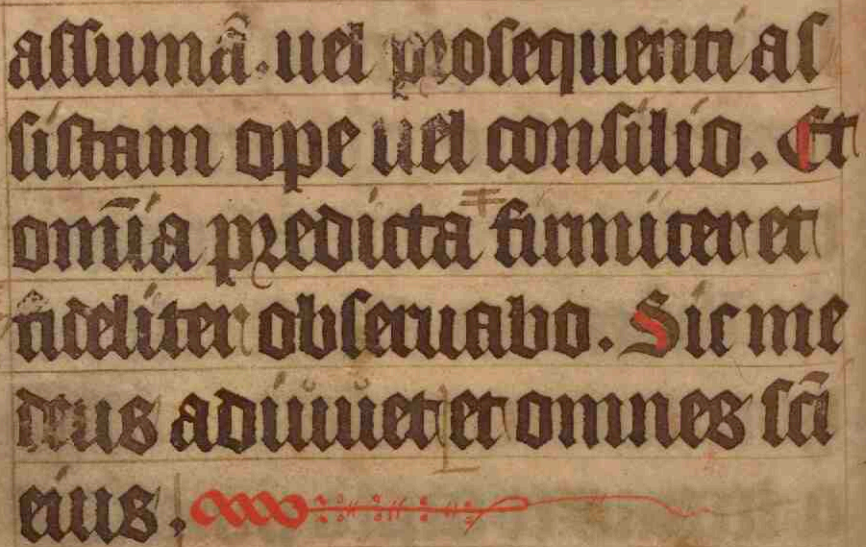 assumā. uel prosequenti as
sistam ope uel consilio. Et
om̄ia predicta firmiter et
fideliter obseruabo. Sic me
deus adiuuet et omnes sc̄i
eius.